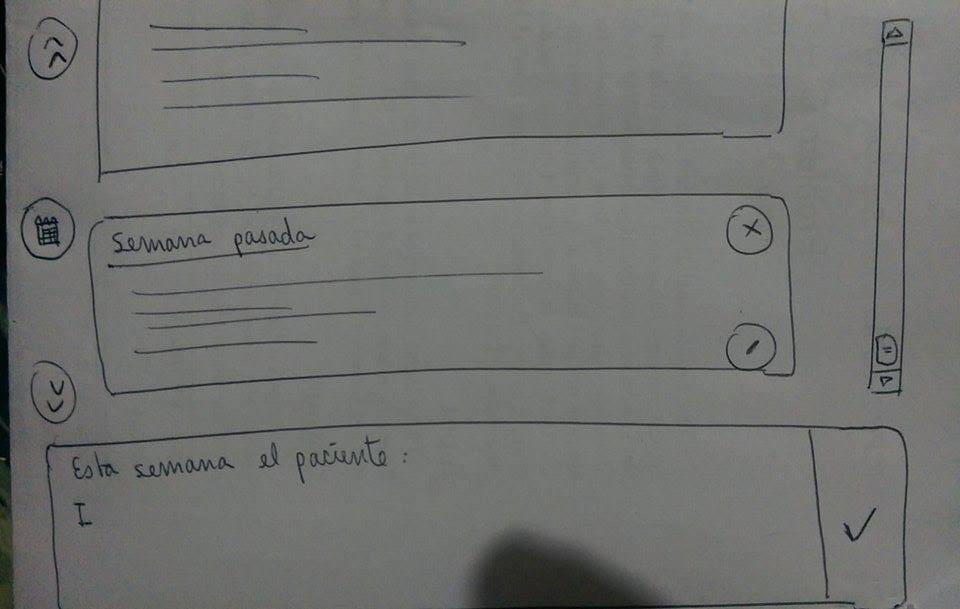 semana pasada
Esta semana el paciente: